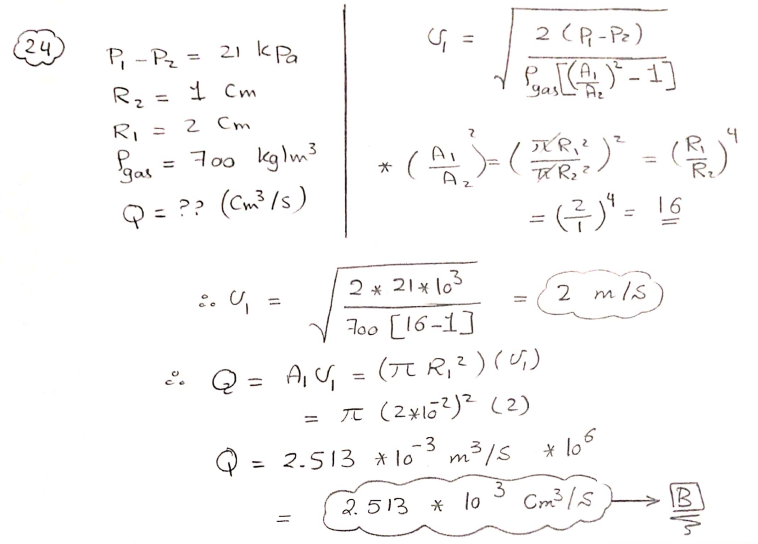 24
P₁ - P₂ = 21 kPa
R₂ = 1 Cm
R₁ = 2 Cm
ρgas = 700 kg/m³
Q = ?? (Cm³/s)
υ₁ = √(2 (P₁-P₂) / ρgas[(A₁/A₂)² - 1])
* (A₁/A₂)² = (πR₁²/πR₂²)² = (R₁/R₂)⁴
= (2/1)⁴ = 16
∴ υ₁ = √(2 * 21 * 10³ / 700 [16-1]) = 2 m/s
∴ Q = A₁ υ₁ = (π R₁²) (υ₁)
= π (2*10⁻²)² (2)
Q = 2.513 * 10⁻³ m³/s * 10⁶
= 2.513 * 10³ Cm³/s → B